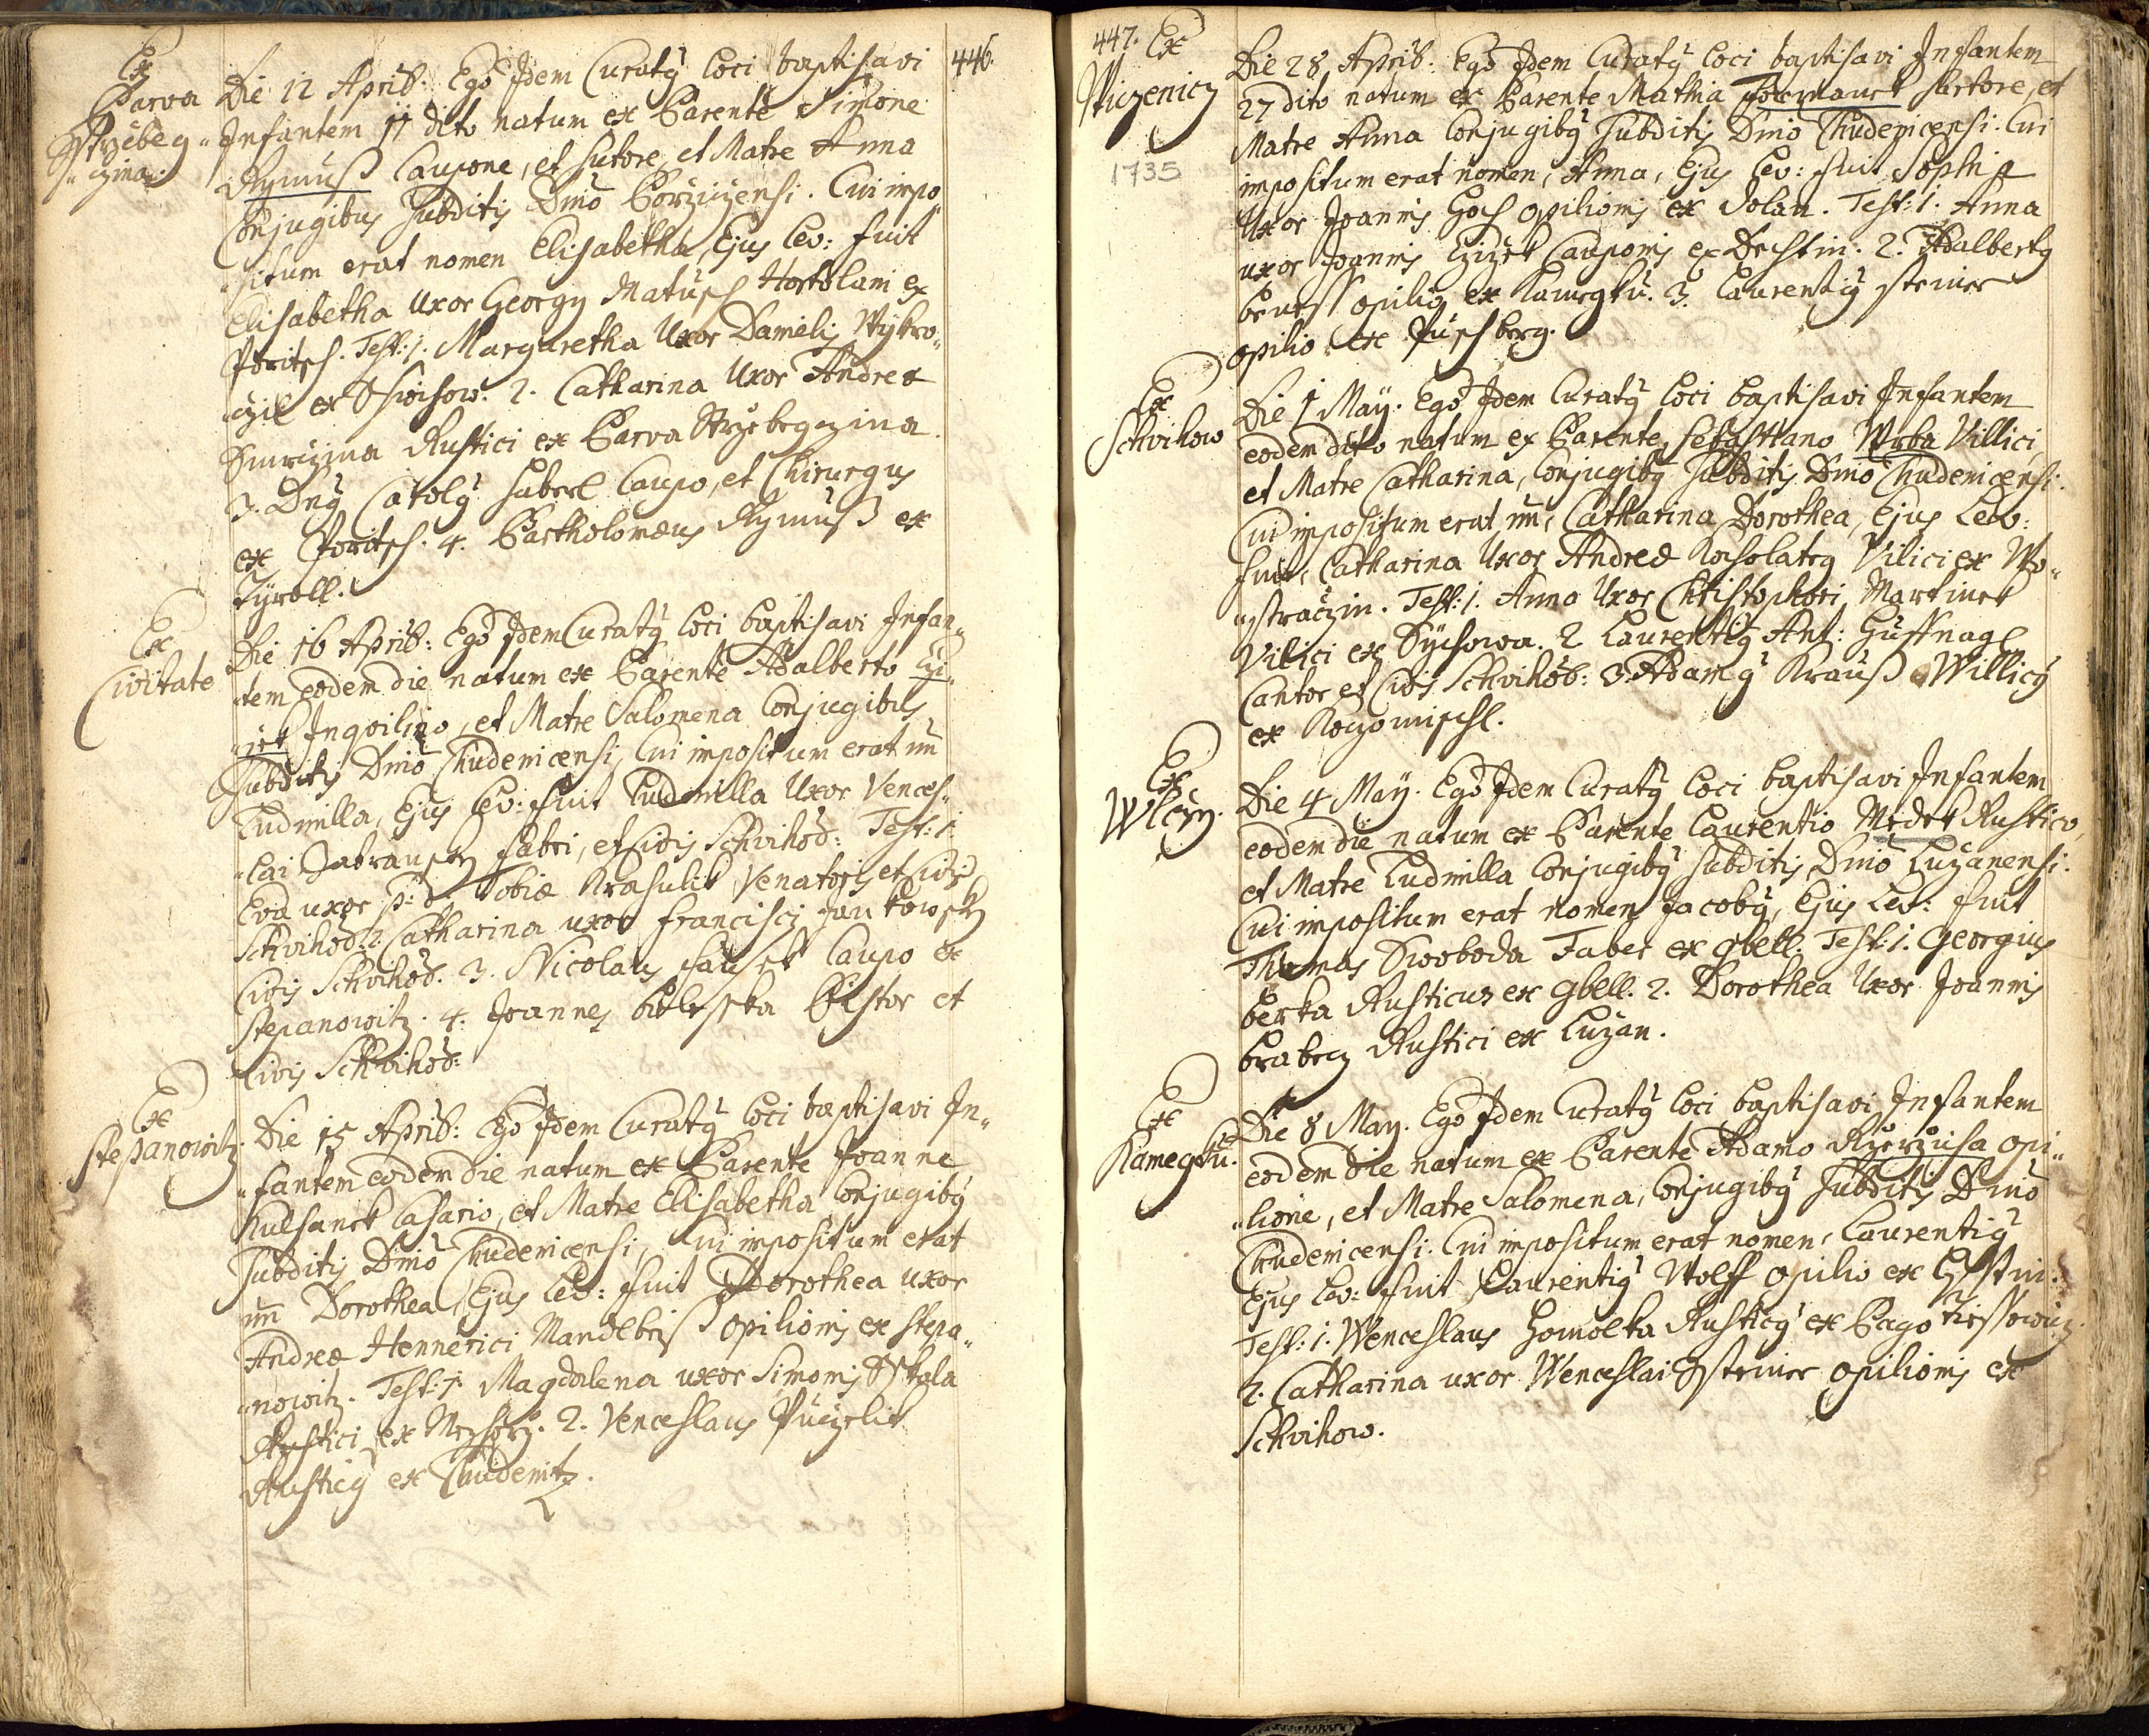 446.
Ex
Parva
Strzebeg„
„czina.
Die 12 Aprib: Ego Idem Curatq Loci baptisavi
Infantem 11 dito natum ex Parente Simone
Rymuß Caupone, et Sutore, et Matre Anna
Conjugibus Subditis Dnio Porzizensi. Cui impo„
„situm erat nomen Elisabetha, Ejus Lev: fuit
Elisabetha Uxor Georgy Matusch Hortolani ex
Poritsch. Test: 1. Margaretha Uxor Danielis
ex 2. Catharina Uxor Andreæ
Rustici ex Parva Strzebegczina.
3. Dnq Carolq Haberl Caupo, et Chirurgus
ex Poritsch. 4. Bartholomæus Rymuß ex
Tyroll.
Ex
Civitate
Die 16 Aprib: Ego Idem Curatq Loci baptisavi Infan„
„tem eodem die natum ex Parente Adalberto
Inqvilino, et Matre Salomena Conjugibus
Subditis Dnio Chudenicensi, Cui impositum erat nn
Ludmilla, Ejus Lev: fuit Ludmilla Uxor Vences„
„lai Fabri, et Civis Schvihov: Test: 1.
Eva uxor p: d Tobiæ Krasulik Venatoris et Civis
Schvihov: 2. Catharina uxor Francisci Jankowsky
Civis Schvihov. 3. Nicolaus Caupo ex
Stepanowitz. 4. Joannes Pistor et
Civis Schvihov:
Ex
Stepanowitz.
Die 15 Aprib: Ego Idem Curatq Loci baptisavi In„
„fantem eodem die natum ex Parente Joanne
Casario, et Matre Elisabetha Conjugibq
Subditis Dnio Chudenicensi, Cui impositum erat
nn Dorothea, Ejus Lev: fuit Dorothea uxor
Andreæ Hennerici Mandlbeiß opilionis ex Stepa„
„nowitz. Test: 1. Magdalena uxor Simonis Skala
Rustici ex Mezhorz. 2. Venceslaus Puczelik
Rusticq ex Chudenitz.
447.
Ex
Wiczenicz
1735
Die 28 Aprib: Ego Idem Curatq Loci baptisavi Infantem
27 dito natum ex Parente Mathia Formanek Sartore, et
Matre Anna Conjugibq Subditis Dnio Chudenicensi. Cui
impositum erat nomen, Anna, Ejus Lev: fuit Sophia
Uxor Joannis Hoch opilionis ex Dolan. Test: 1. Anna
uxor Joannis Cziczek Cauponis ex Dehstin: 2. Adalbertq
opilio ex Kamegku. 3. Laurentiq Steiner
opilio ex Puschberg.
Ex
Schvihow
Die 1 May. Ego Idem Curatq Loci baptisavi Infantem
eodem dito natum ex Parente, Sebastiano Wrba Villici,
et Matre Catharina, Conjugibq Subditis Dnio Chudenicensi.
Cui impositum erat nn, Catharina Dorothea, Ejus Lev:
fuit, Catharina Uxor Andreæ Vilici ex Wo„
„straczin. Test: 1. Anna Uxor Christophori Martinek
Vilici ex Sychowa. 2 Laurentiq Ant: Hußnagl
Cantor et Civis Schvihov: 3. Adamq Krauß Willicq
ex Kozomischl.
Ex
Wlczy.
Die 4 May. Ego Idem Curatq Loci baptisavi Infantem
eodem die natum ex Parente Laurentio Medek Rustico,
et Matre Ludmilla Conjugibq Subditis Dnio Luzanensi.
Cui impositum erat nomen Jacobq, Ejus Lev: fuit
Thomas Swoboda Faber ex Gbell. Test: 1. Georgius
Berka Rusticus ex Gbell. 2. Dorothea Uxor Joannis
Brabecz Rustici ex Luzan.
Ex
Kamegku.
Die 8 May. Ego Idem Curatq Loci baptisavi Infantem
eodem die natum ex Parente Adamo Rzerzicha opi„
„lione, et Matre Salomena, Conjugibq Subditis Dnio
Chudenicensi. Cui impositum erat nomen, Laurentiq
Ejus Lev: fuit Laurentiq Wolff opilio ex
Test: 1. Wenceslaus Homolka Rusticq ex Pago
2. Catharina uxor Wenceslai Steiner opilionis ex
Schvihow.